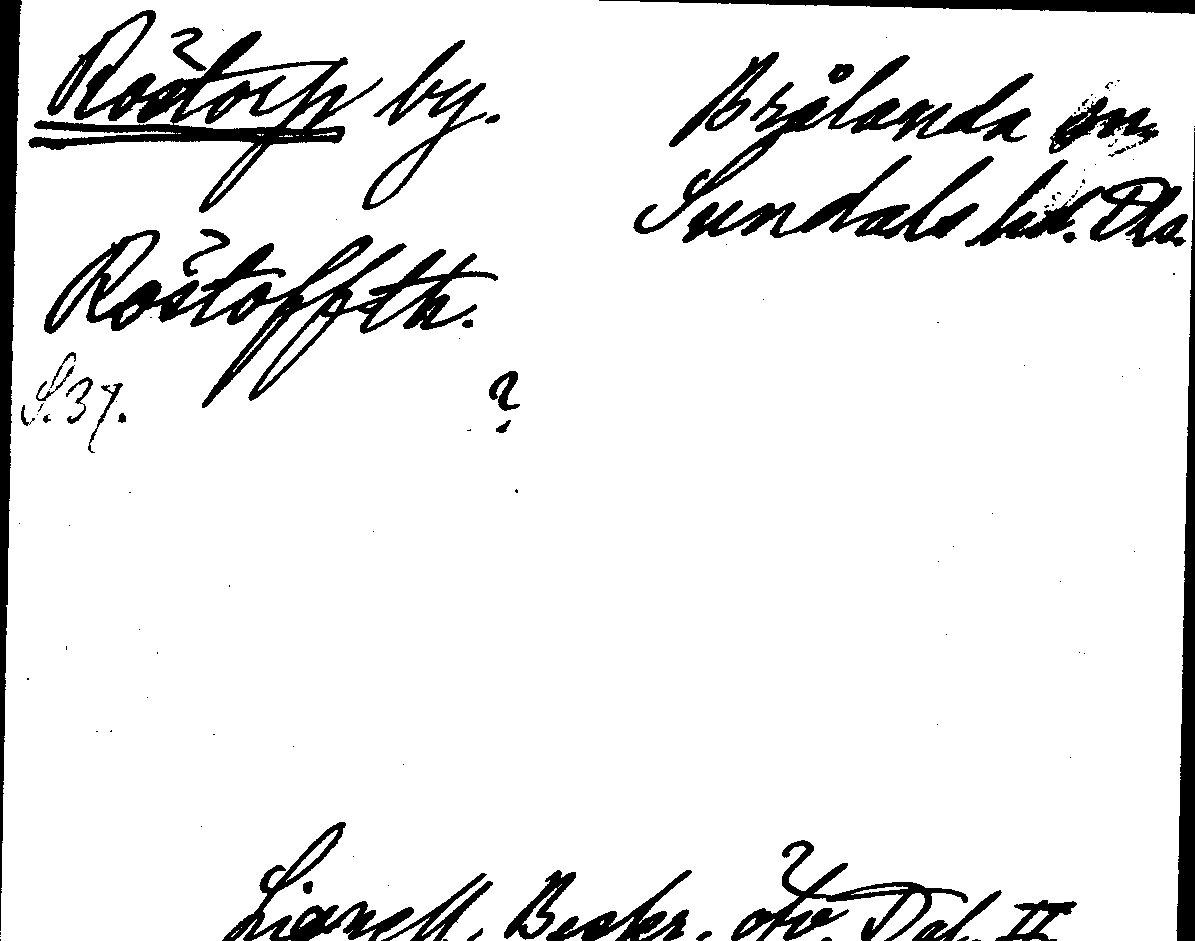 Rostorp by. Brålanda sn.
Sundals hd. Dls.
Rostoffth.
S. 37. ?
Lignell, Beskr. öfv. Dal. II